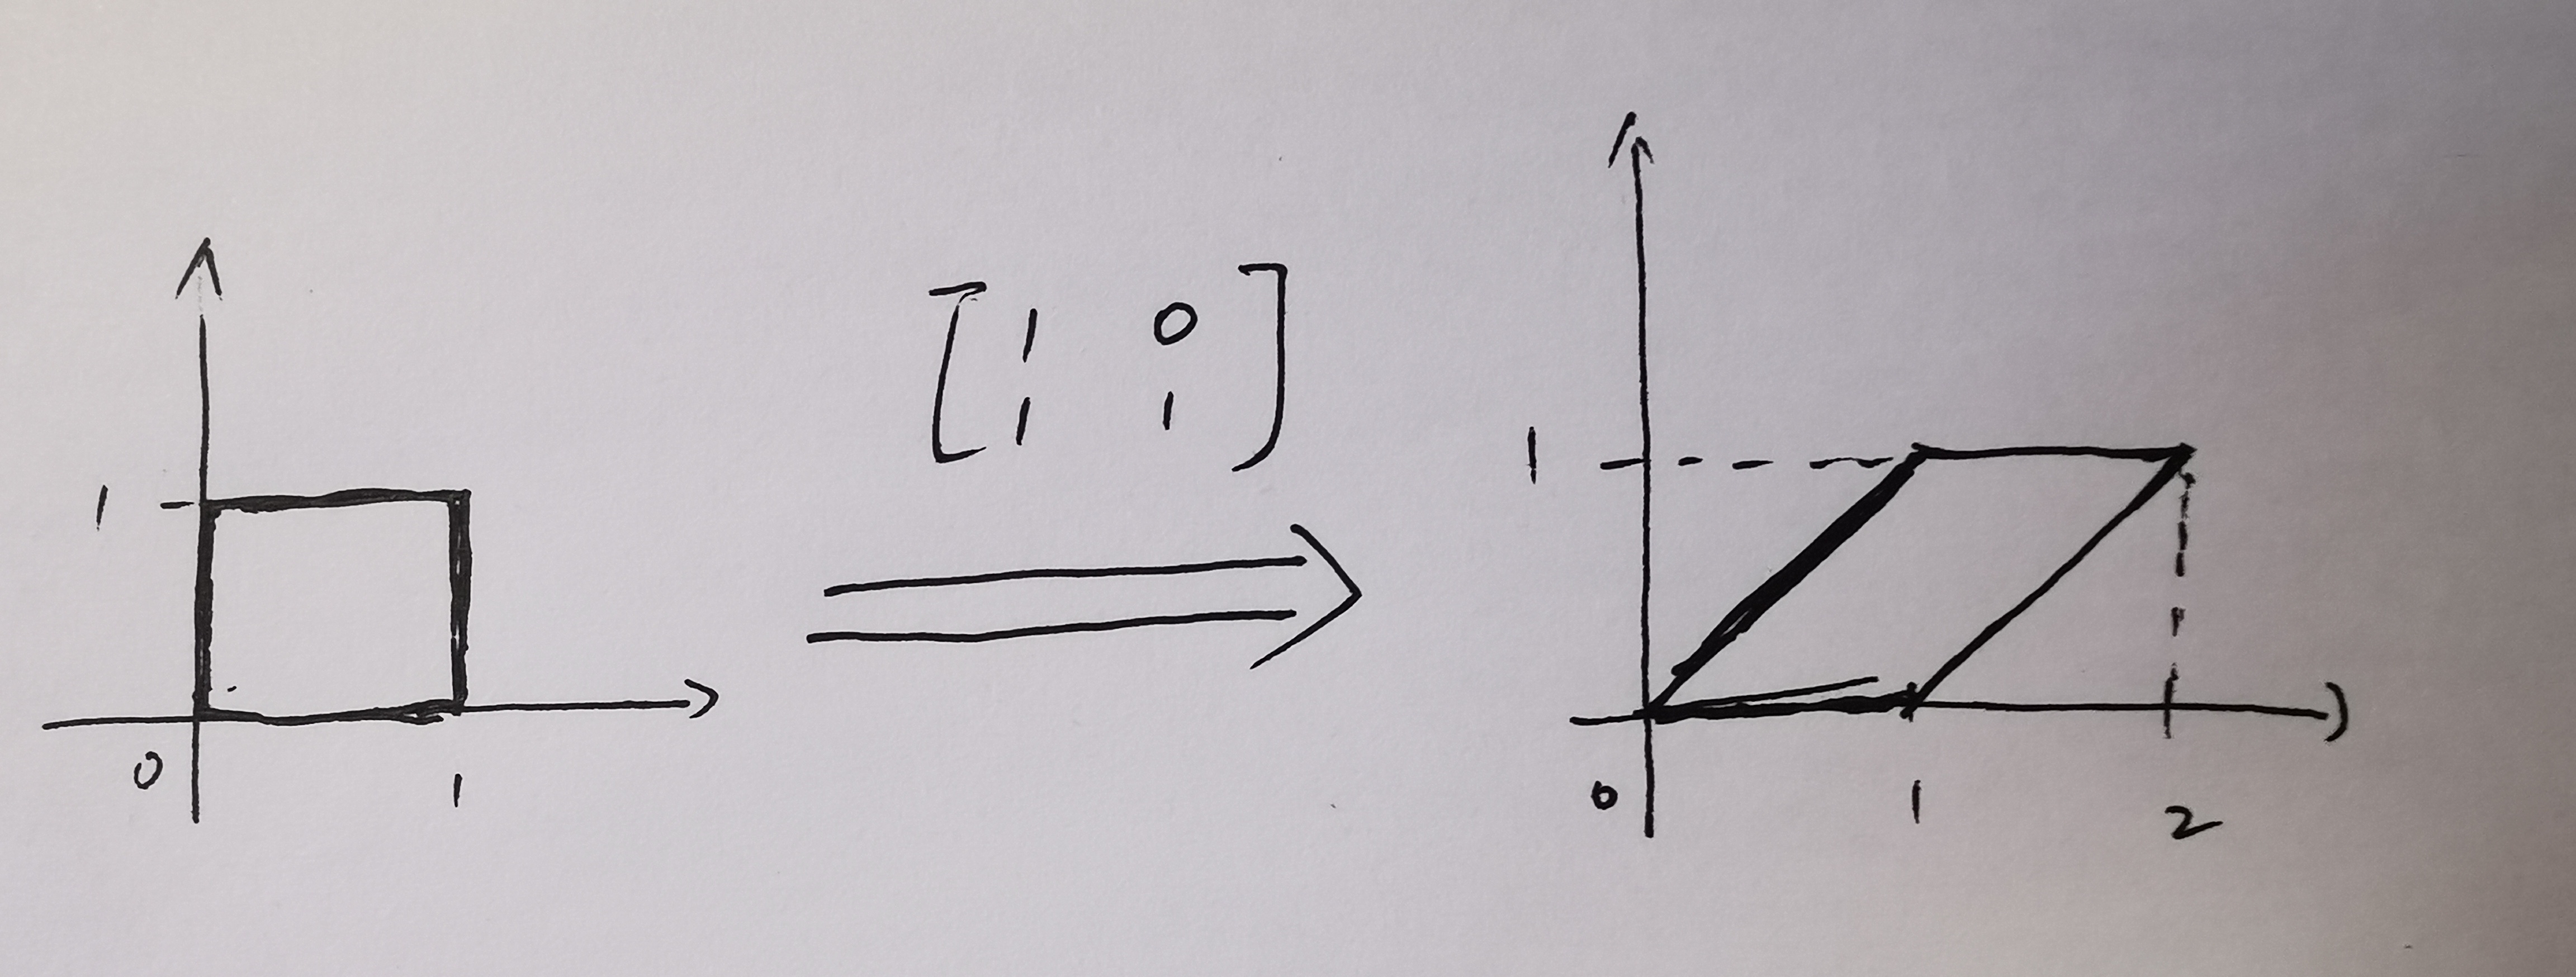 1
0 1
[1 0
1 1]
1
0 1 2